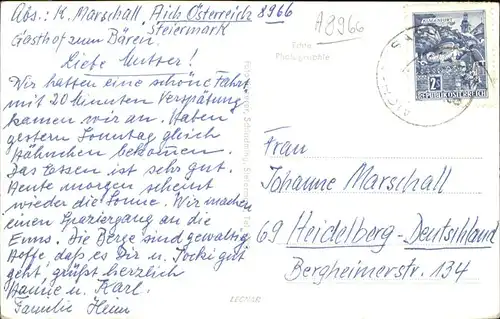 Abs.: K. Marschall, Aich Österreich 8966
Steiermark
Gasthof zum Bären.
Liebe Mutter!
Wir hatten eine schöne Fahrt
mit 20 Minuten Verspätung
kamen wir an. Haben
gestern Sonntag gleich
Hähnchen bekommen.
Das Essen ist sehr gut.
Heute morgen scheint
wieder die Sonne. Wir machen
einen Spaziergang an die
Enns. Die Berge sind gewaltig
Hoffe, daß es Dir u. Jocki gut
geht, grüßt herzlich
Hanne u. Karl.
Familie Heim
A8966
Echte
Photographie
KLAGENFURT
2S
REPUBLIK ÖSTERREICH
Frau
Johanne Marschall
69 Heidelberg-Deutschland
Bergheimerstr. 134